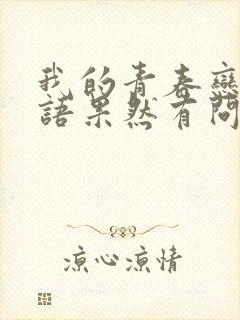 我的青春戀
語果然有問
凉心凉情